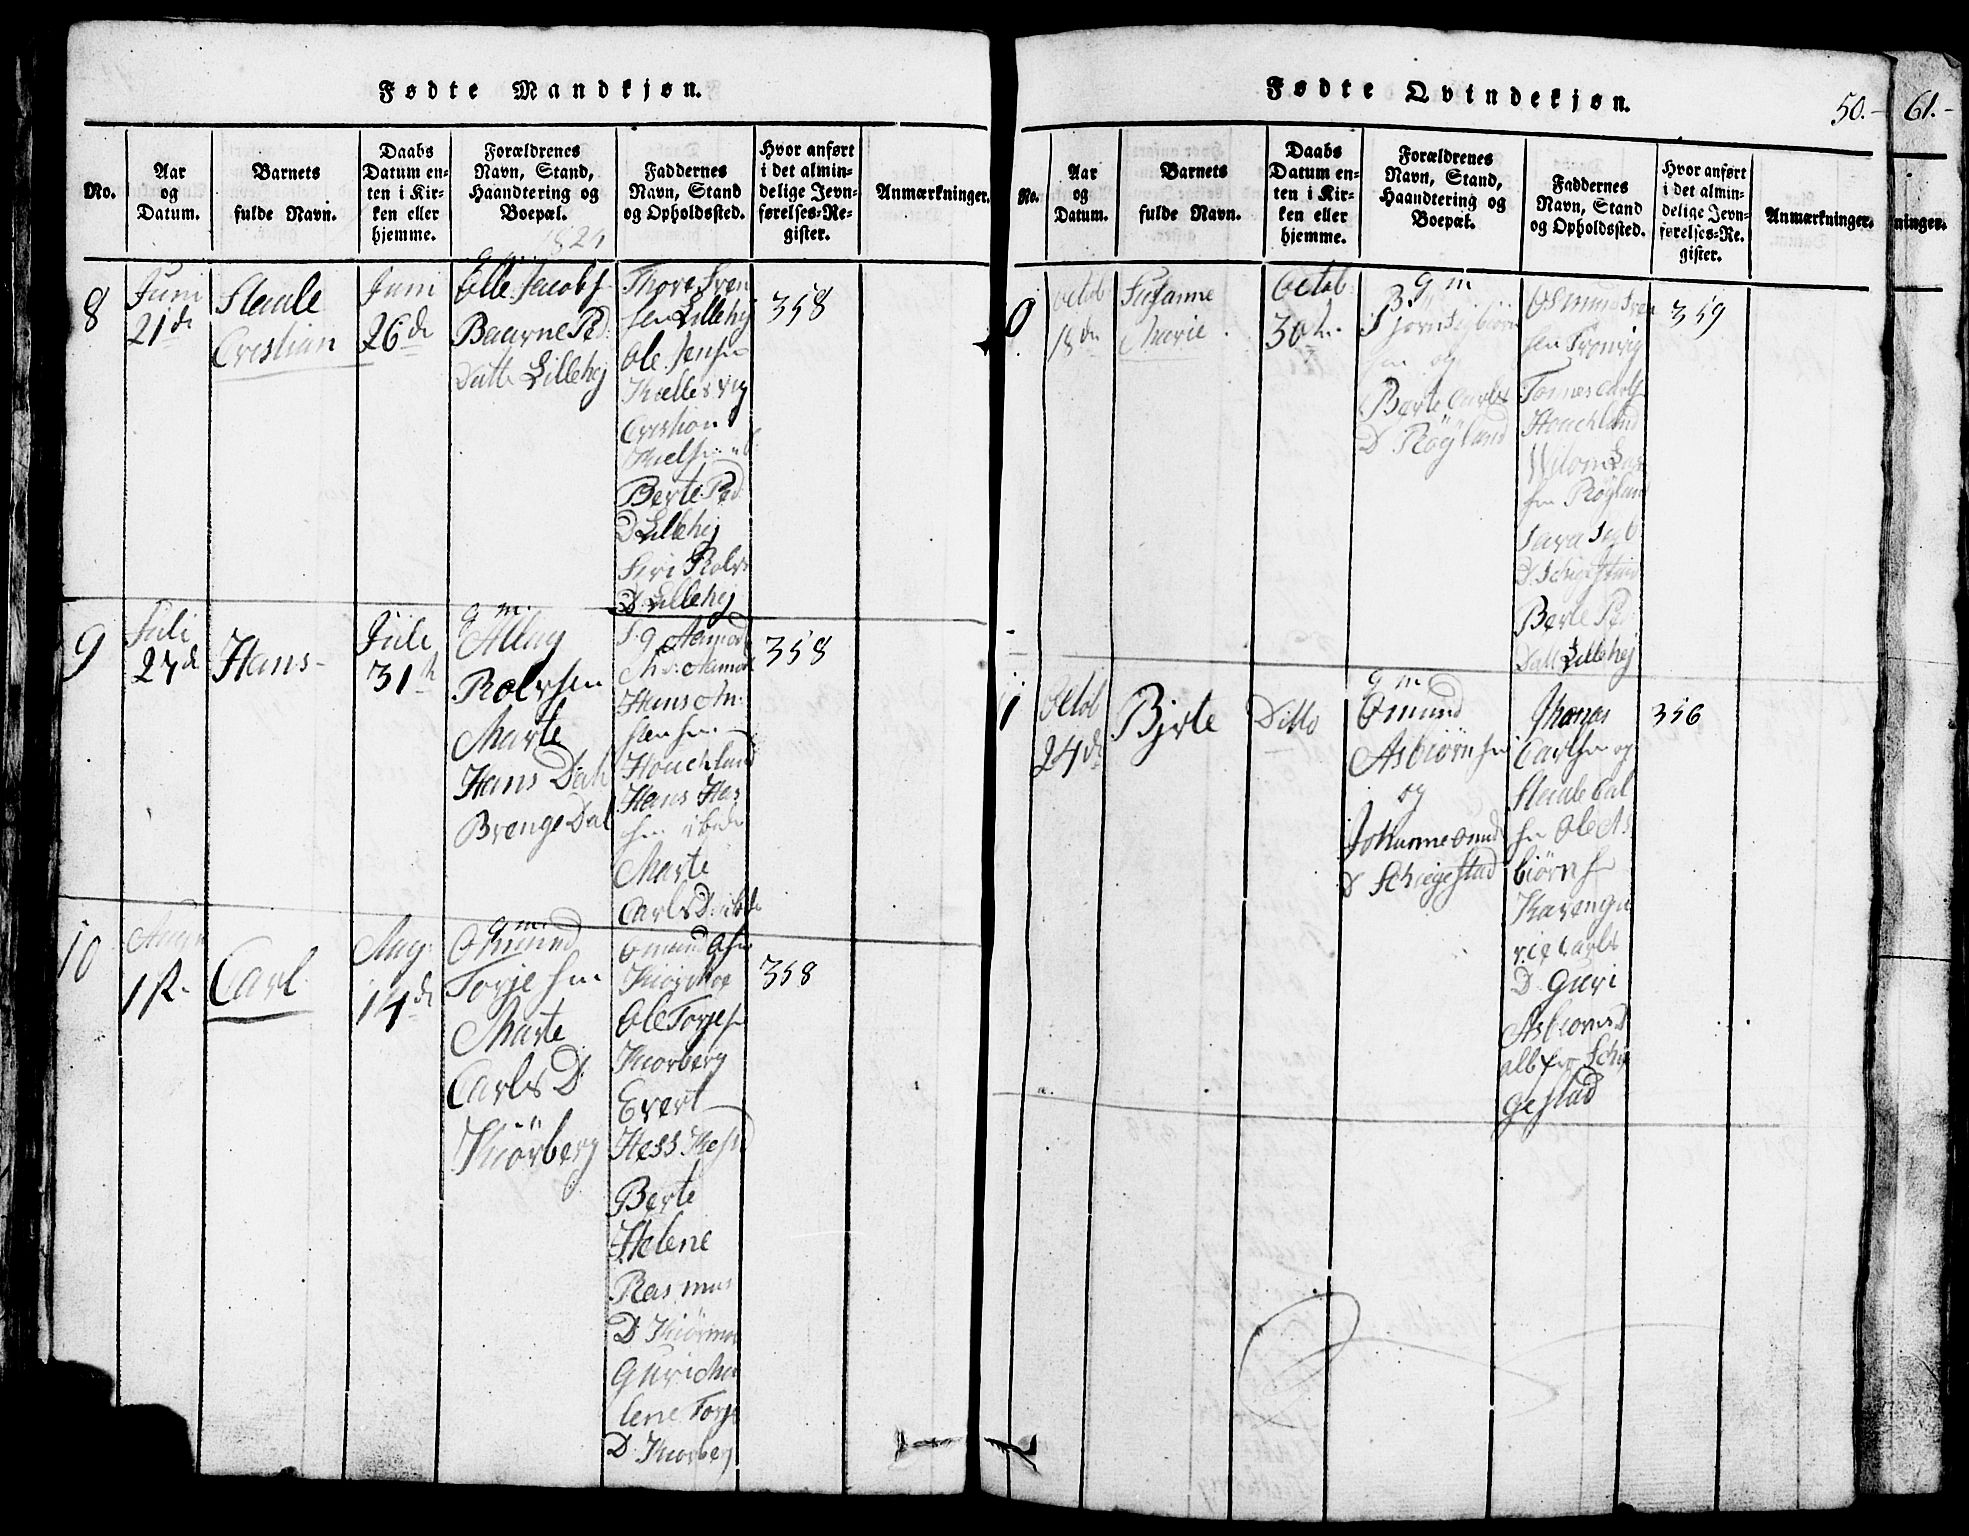 Fødte Mandkjøn.
No.
Aar
og
Datum.
Barnets
fulde Navn.
Daabs
Datum en-
ten i Kir-
ken eller
hjemme.
Forældrenes
Navn, Stand,
Haandtering og
Boepæl.
Faddernes
Navn, Stand
og Opholdssted.
Hvor anført
i det almin-
delige Jevn-
førelses-Re-
gister.
Anmærkninger.
8
Juni
21de
Staale
Cristian
Juni
26de
Elle Jacobs
Baarne Ped
Datte Lillehej
Thore Sven
sen Lillehej
Ole Jensen
Kallesvig
Cristian
Nielsen
Berte Ped
D Lillehej
Siri Rolvs
D Lillehej
358
9
Juli
27de
Hans
Juli
31te
g m.
Allag
Rolvsen
Marte
Hans Datt
Brenge Dal
Hans
Houchland
Hans Han
sen ibede
Marte
Carls D ibede
358
10
Augu
1te
Carl
Aug:
14de
g m.
Omund
Torjesen
Marte
Carls D
Kiörberg
Omund
Kiörmoe
Ole Torjes
Kiorberg
Evert
Hess
Berte
Helene
Rasmus
D Kiörmoe
Guri Ma
lene Torje
D. Kiorberg
358
Fødte Qvindekjøn.
50.-
No.
Aar
og
Datum.
Barnets
fulde Navn.
Daabs
Datum en-
ten i Kir-
ken eller
hjemme.
Forældrenes
Navn, Stand,
Haandtering og
Boepæl.
Faddernes
Navn, Stand
og Opholdssted.
Hvor anført
i det almin-
delige Jevn-
førelses-Re.
gister.
Anmærkninger.
0
Octob
18de
Susanne
Marie
Octob
30te
g m
Bjorn Segbiørn
sen og
Berte Carls
D Röyland
Osmund Sven
sen Tronvig
Tomas Carls
Houchland
sen Röyland
Berte Ped
Datt Lillehej
359
1
Octob
24de
Bjrte
Ditto
g m
Omund
Asbiörnsen
og
Johanne Omund
D Schiegestad
Thomas
Carlsen og
Staale Cal
sen Ole As
biörns
Karen Gu
rie Carls
D. Guri
Asbiorns D
alle fra Schie
gestad
356
61.-
ninger.